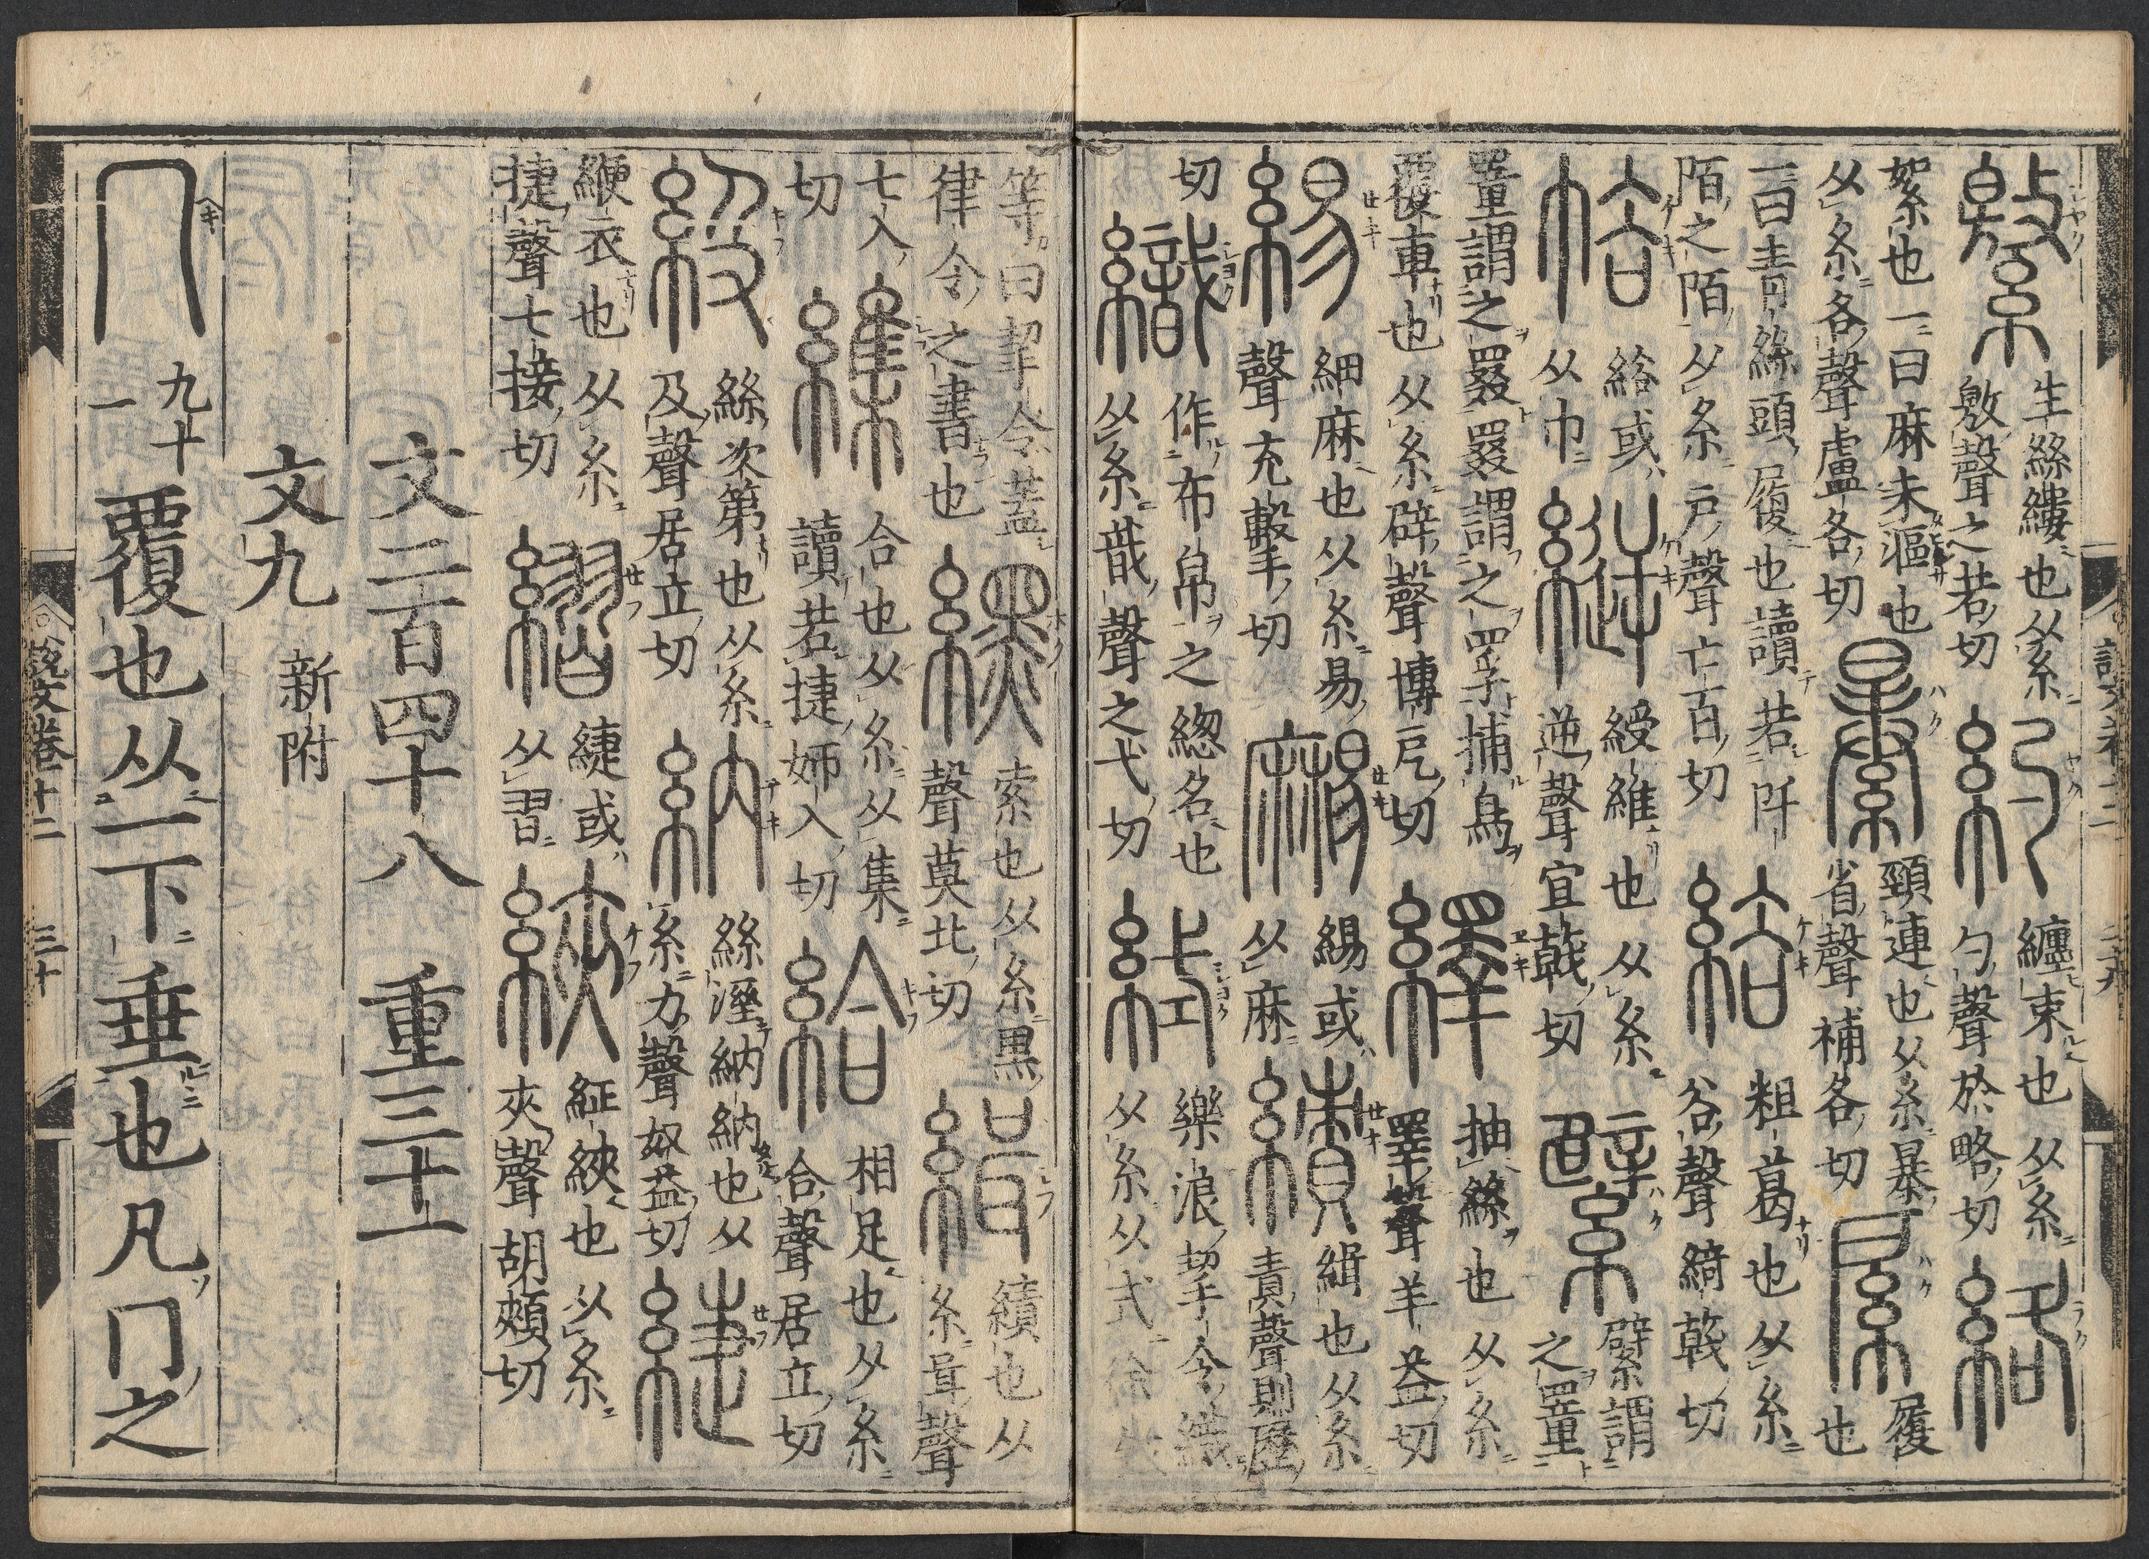 繳 生絲縷也从糸敫聲之若切 約 纏束也从糸勺聲於略切 絡
絮也一曰麻未漚也从糸各聲盧各切 頸連也从糸暴省聲補各切 履也
一曰青絲頭履也讀若阡陌之陌从糸戶聲亡百切 綌 粗葛也从糸谷聲綺戟切
綌或从巾 縌 綬維也从糸逆聲宜戟切 繴 繴謂之罿
罿謂之罬罬謂之罦捕鳥覆車也从糸辟聲博戹切 繹 抽絲也从糸睪聲羊益切
緆 細麻也从糸易聲充擊切 緆或从麻 績 緝也从糸責聲則歷
切 織 作布帛之緫名也从糸戠聲之弋切 樂浪挈令織从糸从式徐鉉
等曰挈令蓋律令之書也 纆 索也从糸黑聲莫北切 緝 績也从糸咠聲
七入切 合也从糸从集讀若捷姊入切 給 相足也从糸合聲居立切
級 絲次第也从糸及聲居立切 納 絲溼納納也从糸內聲奴益切 緁
緶衣也从糸捷聲七接切 緁或从習 綊 紝綊也从糸夾聲胡頰切
文二百四十八 重三十一
文九 新附
冖 九十一 覆也从一下垂也凡冖之
說文卷十二 三十